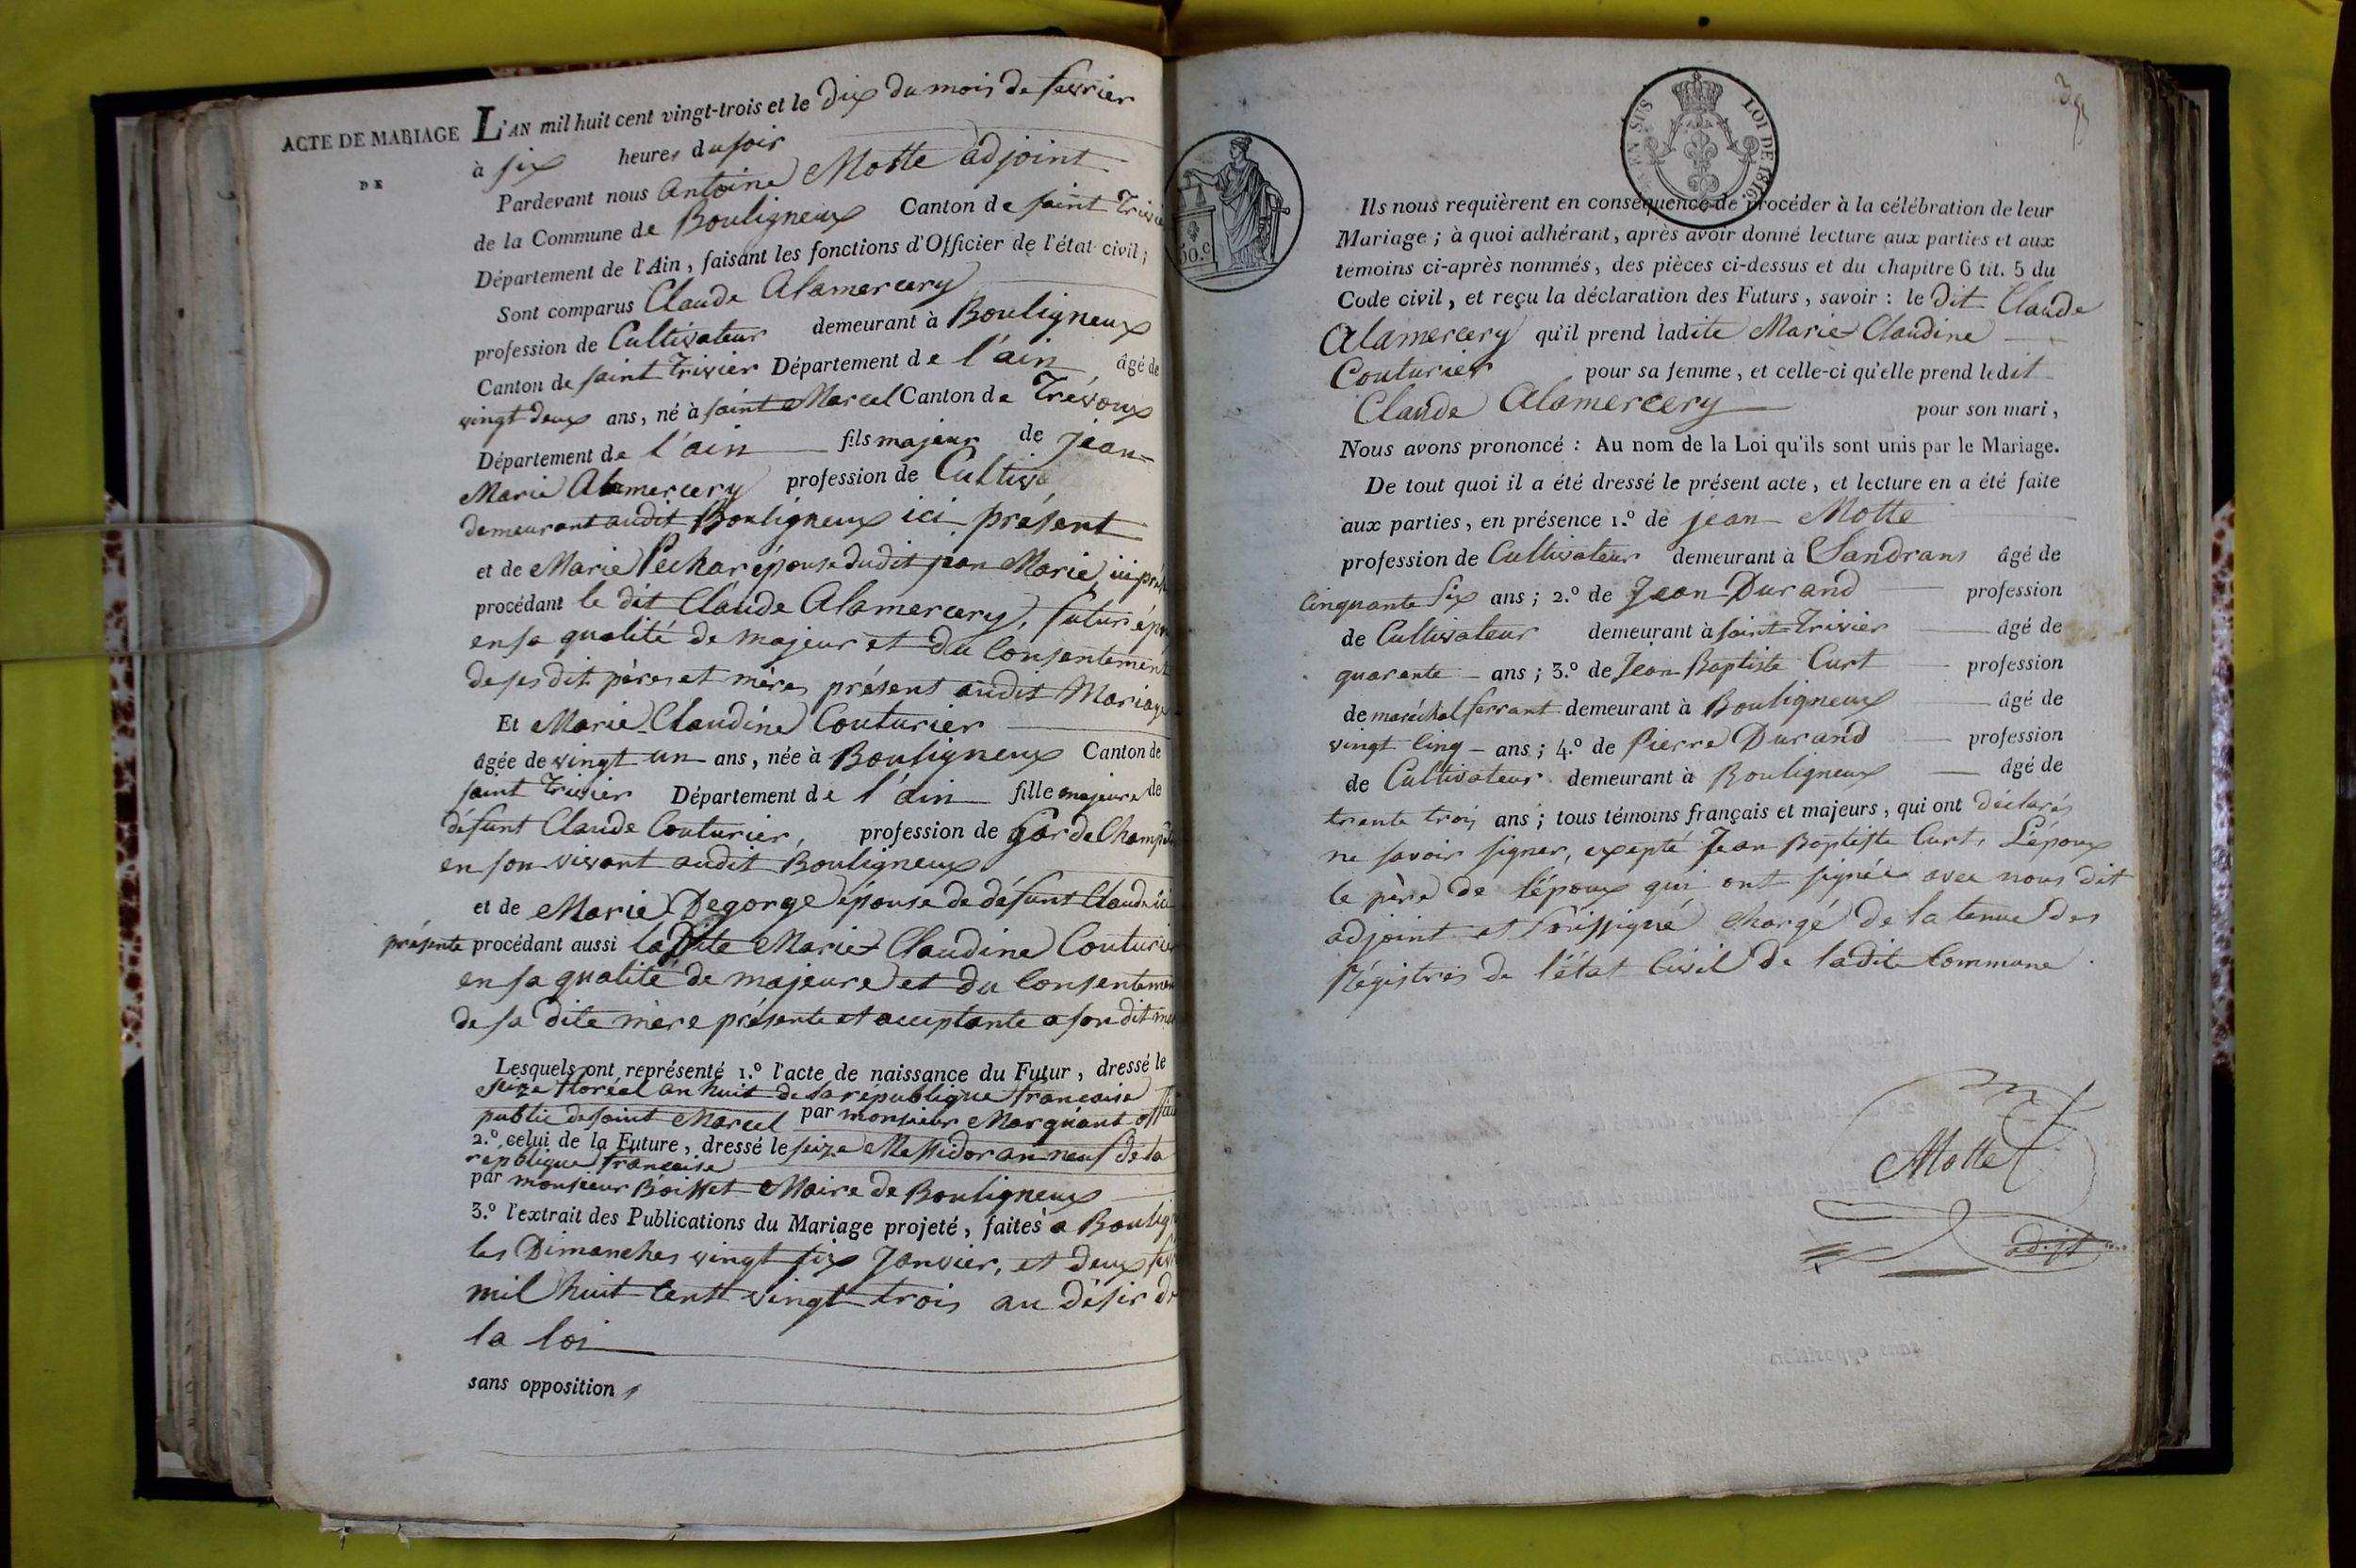 ACTE DE MARIAGE
DE
L'AN mil huit cent vingt-trois et le Dix du mois de fevrier
à six heures du soir
Pardevant nous Antoine Motte adjoint
de la Commune de Bouligneux Canton de saint Trivier
Département de l'Ain, faisant les fonctions d'Officier de l'état-civil;
Sont comparus Claude Alamercery
profession de Cultivateur demeurant à Bouligneux
Canton de saint Trivier Département de l'ain âgé de
vingt deux ans, né à saint Marcel Canton de Trévoux
Département de l'ain fils majeur de jean-
Marie Alamercery profession de Cultiva
demeurant audit Bouligneux ici présent
et de Marie Pechar épouse dudit jean Marie, ici
procédant le dit Claude Alamercery, futur
en sa qualité de majeur et du Consentement
de ses dit pères et mères présent audit Mariage
Et Marie Claudine Couturier
âgée de vingt un ans, née à Bouligneux Canton de
saint Trivier Département de l'ain fille majeure de
défunt Claude Couturier, profession de Garde Champ
en son vivant audit Bouligneux
et de Marie Degorge épouse de défunt Claude ici
présente procédant aussi la Dite Marie Claudine Couturier
en sa qualité de majeure et du Consentemen
de sa dite mère présente et acceptante a son dit
Lesquels ont représenté 1.º l'acte de naissance du Futur, dressé le
seize floréal an huit de la république francaise
public de saint Marcel par monsieur Marquant
2.º celui de la Future, dressé le seize Messidor an neuf de la
république francaise
par monsieur Boisset Maire de Bouligneux
3.º l'extrait des Publications du Mariage projeté, faites a Boulign
les Dimanches vingt six Janvier, et deux
mil huit cent vingt trois au désir de
la loi
sans opposition
50.c
LOI DE 1816.
Ils nous requièrent en conséquence de procéder à la célébration de leur
Mariage; à quoi adhérant, après avoir donné lecture aux parties et aux
temoins ci-après nommés, des pièces ci-dessus et du chapitre 6 tit. 5 du
Code civil, et reçu la déclaration des Futurs, savoir: le dit Claude
Alamercery qu'il prend ladite Marie Claudine
Couturier pour sa femme, et celle-ci qu'elle prend ledit
Claude Alamercery pour son mari,
Nous avons prononcé: Au nom de la Loi qu'ils sont unis par le Mariage.
De tout quoi il a été dressé le présent acte, et lecture en a été faite
aux parties, en présence 1.º de jean Motte
profession de Cultivateur demeurant à Sandrans âgé de
Cinquante Six ans; 2.º de Jean Durand profession
de Cultivateur demeurant à saint Trivier âgé de
quarente ans; 3.º de Jean Baptiste Curt profession
de maréchal ferrant demeurant à Bouligneux âgé de
vingt Cinq ans; 4.º de Pierre Durand profession
de Cultivateur demeurant à Bouligneux âgé de
trente trois ans; tous témoins français et majeurs, qui ont déclarés
ne savoir signer, excepté Jean Baptiste Curt, L'époux
le père de l'époux qui ont signés avec nous dit
adjoint et soussigné Chargé de la tenue des
Régistres de l'état Civil de ladite Commune.
Motte
adjt